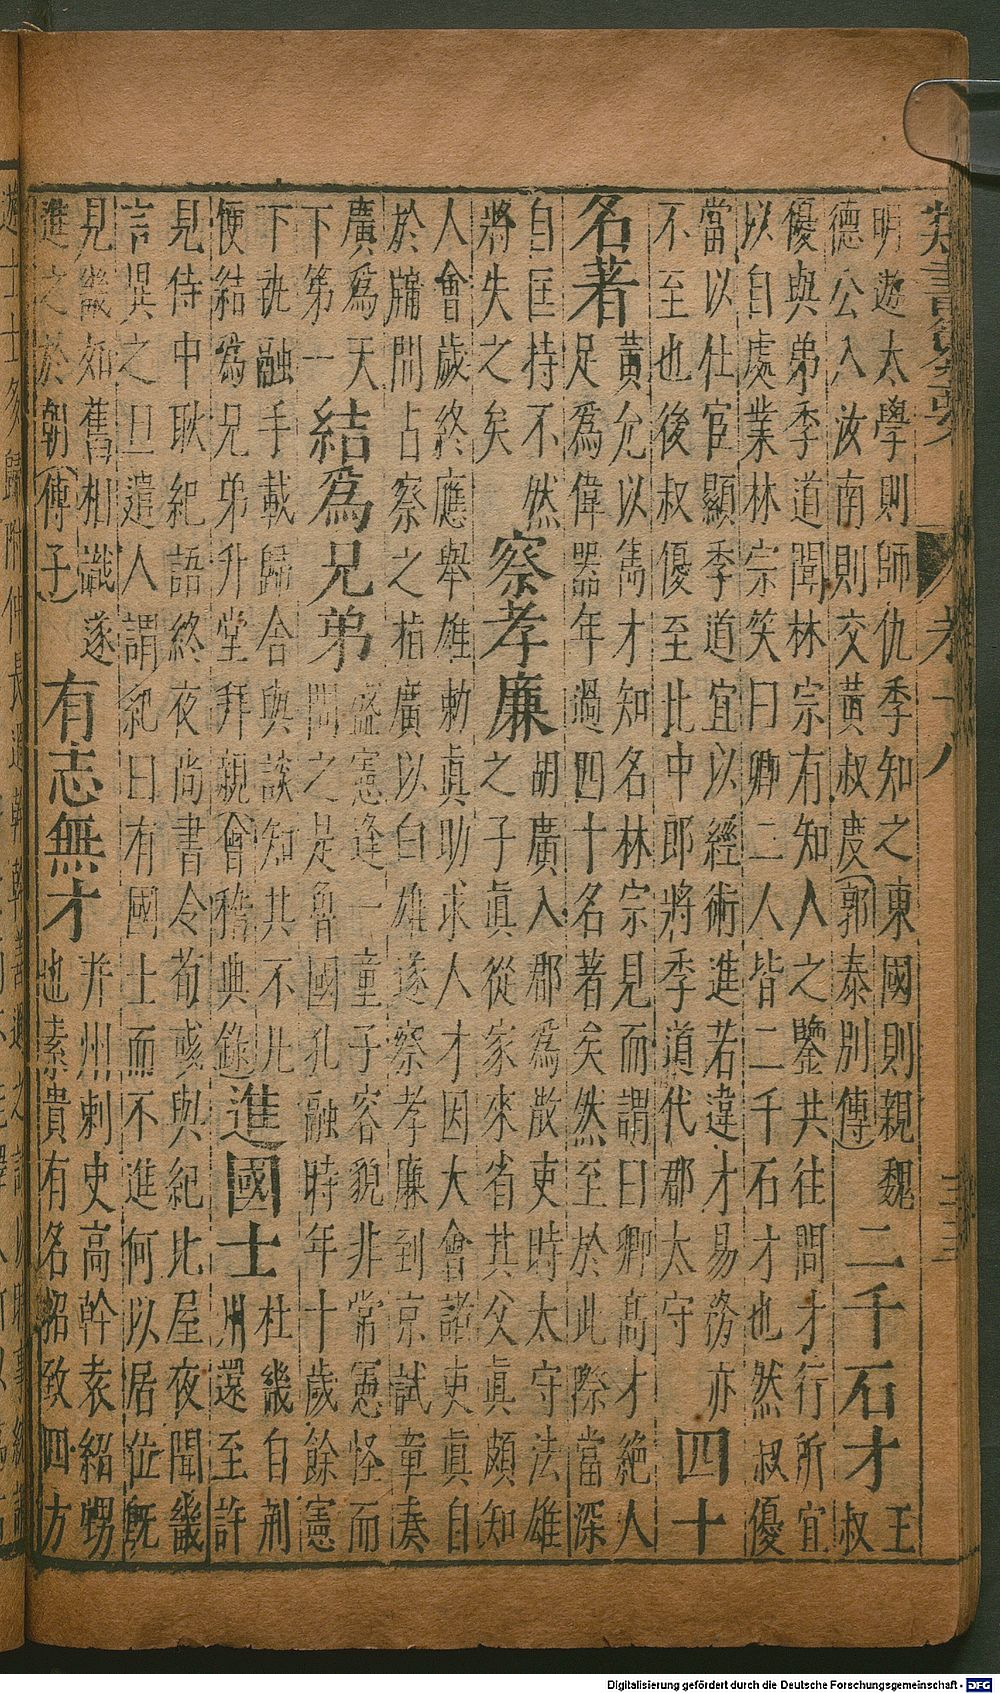 類書纂要 卷十八 三三
明遊太學則師仇季知之東國則親魏
德公入汝南則交黃叔度(郭泰別傳)
二千石才
王
叔
優與弟季道聞林宗有知人之鑒共往問才行所宜
以自處業林宗笑曰卿二人皆二千石才也然叔優
當以仕宦顯季道宜以經術進若違才易務亦
不至也後叔優至北中郎將季道代郡太守
四十
名著
黃允以雋才知名林宗見而謂曰卿高才絕人
足為偉器年過四十名著矣然至於此際當深
自匡持不然
將失之矣
察孝廉
胡廣入郡為散吏時太守法雄
之子真從家來省其父真頗知
人會歲終應舉雄勅真助求人才因大會諸吏真自
於牖間占察之指廣以白雄遂察孝廉到京試章奏
廣為天
下第一
結為兄弟
盛憲逢一童子容貌非常憲怪而
問之是魯國孔融時年十歲餘憲
下執融手載歸舍與談知其不凡
便結為兄弟升堂拜親(會稽典錄)
進國士
杜畿自荊
州還至許
見侍中耿紀語終夜尚書令荀彧與紀比屋夜聞畿
言異之旦遣人謂紀曰有國士而不進何以居位既
見畿如舊相識遂
進之於朝(傅子)
有志無才
并州刺史高幹袁紹甥
也素貴有名招致四方
Digitalisierung gefördert durch die Deutsche Forschungsgemeinschaft - DFG